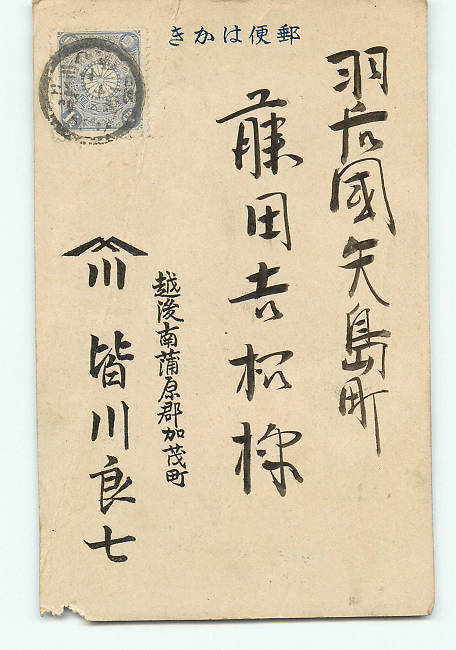 郵便はかき
羽后國矢島町
藤田吉松様
越後南蒲原郡加茂町
川 皆川良七